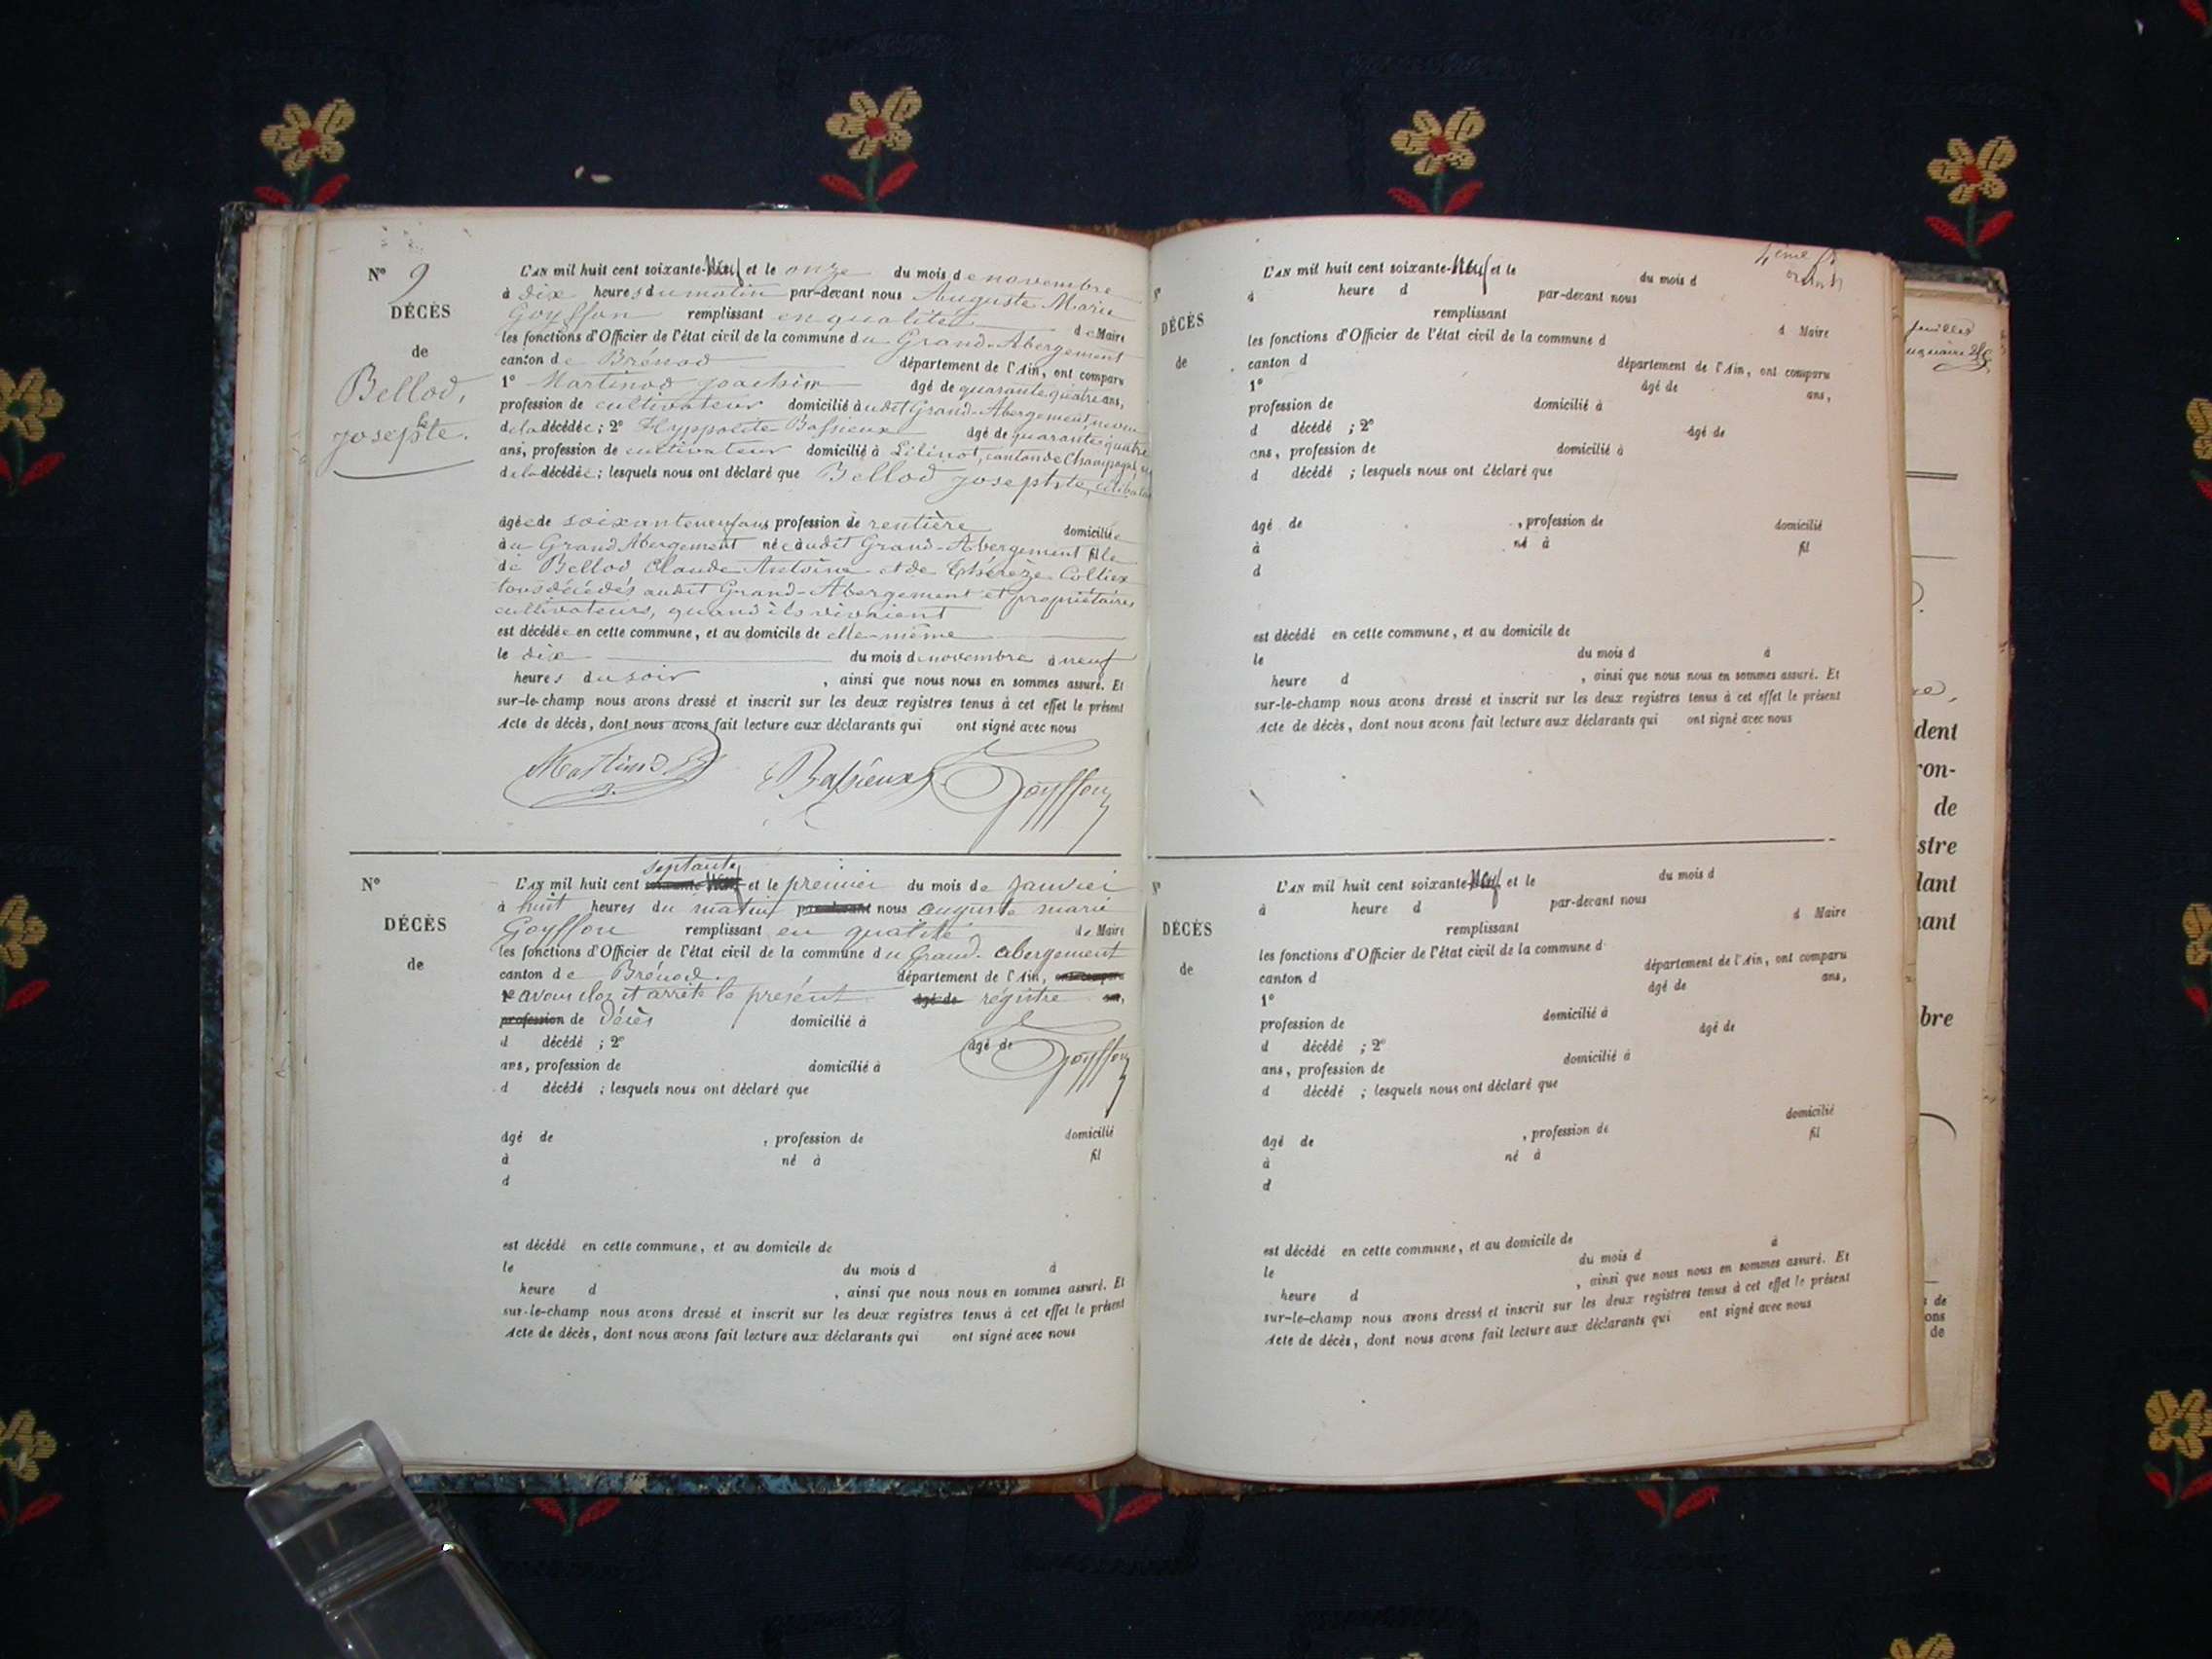 N° 9
DÉCÈS
de
Bellod,
Josephte.
L'AN mil huit cent soixante-Neuf et le onze du mois de novembre
à dix heures du matin par-devant nous Auguste Marie
Goyffon remplissant en qualité de Maire
les fonctions d'Officier de l'état civil de la commune du Grand-Abergement
canton de Brénod département de l'Ain, ont comparu
1° Martinod Joachim âgé de quarante quatre ans,
profession de cultivateur domicilié audit Grand-Abergement, neveu
de la décédée ; 2° Hyppolite Bassieux âgé de quarante quatre
ans, profession de cultivateur domicilié à Lilinod, canton de Champagne,
de la décédée ; lesquels nous ont déclaré que Bellod Josephte, célibataire
âgée de soixante neuf ans profession de rentière domiciliée
au Grand Abergement née audit Grand-Abergement fille
de Bellod Claude Antoine et de Thérèze Colliex
tous décédés audit Grand-Abergement et propriétaires
cultivateurs, quand ils vivaient
est décédée en cette commune, et au domicile de elle-même
le dix du mois de novembre à neuf
heures du soir , ainsi que nous nous en sommes assuré. Et
sur-le-champ nous avons dressé et inscrit sur les deux registres tenus à cet effet le présent
Acte de décès, dont nous avons fait lecture aux déclarants qui ont signé avec nous
Martinod Bassieux Goyffon
N°
DÉCÈS
de
septante
L'AN mil huit cent soixante-Neuf et le premier du mois de Janvier
à huit heures du matin par-devant nous auguste marie
Goyffon remplissant en qualité de Maire
les fonctions d'Officier de l'état civil de la commune du Grand-abergement
canton de Brénod département de l'Ain, ont comparu
1° avons clos et arrêté le présent âgé de régistre ans,
profession de Décès domicilié à
d décédé ; 2° âgé de Goyffon
ans, profession de domicilié à
d décédé ; lesquels nous ont déclaré que
âgé de , profession de domicilié
à né à fil
d
est décédé en cette commune, et au domicile de
le du mois d à
heure d , ainsi que nous nous en sommes assuré. Et
sur-le-champ nous avons dressé et inscrit sur les deux registres tenus à cet effet le présent
Acte de décès, dont nous avons fait lecture aux déclarants qui ont signé avec nous
4ème
N°
DÉCÈS
de
L'AN mil huit cent soixante-Neuf et le du mois d
à heure d par-devant nous
remplissant d Maire
les fonctions d'Officier de l'état civil de la commune d
canton d département de l'Ain, ont comparu
1° âgé de ans,
profession de domicilié à
d décédé ; 2° âgé de
ans, profession de domicilié à
d décédé ; lesquels nous ont déclaré que
âgé de , profession de domicilié
à né à fil
d
est décédé en cette commune, et au domicile de
le du mois d à
heure d , ainsi que nous nous en sommes assuré. Et
sur-le-champ nous avons dressé et inscrit sur les deux registres tenus à cet effet le présent
Acte de décès, dont nous avons fait lecture aux déclarants qui ont signé avec nous
N°
DÉCÈS
de
L'AN mil huit cent soixante-Neuf et le du mois d
à heure d par-devant nous
remplissant d Maire
les fonctions d'Officier de l'état civil de la commune d
canton d département de l'Ain, ont comparu
1° âgé de ans,
profession de domicilié à
d décédé ; 2° âgé de
ans, profession de domicilié à
d décédé ; lesquels nous ont déclaré que
âgé de , profession de domicilié
à né à fil
d
est décédé en cette commune, et au domicile de
le du mois d à
heure d , ainsi que nous nous en sommes assuré. Et
sur-le-champ nous avons dressé et inscrit sur les deux registres tenus à cet effet le présent
Acte de décès, dont nous avons fait lecture aux déclarants qui ont signé avec nous
feuilles
dent
ron-
de
stre
dant
nant
bre
de
ons
de